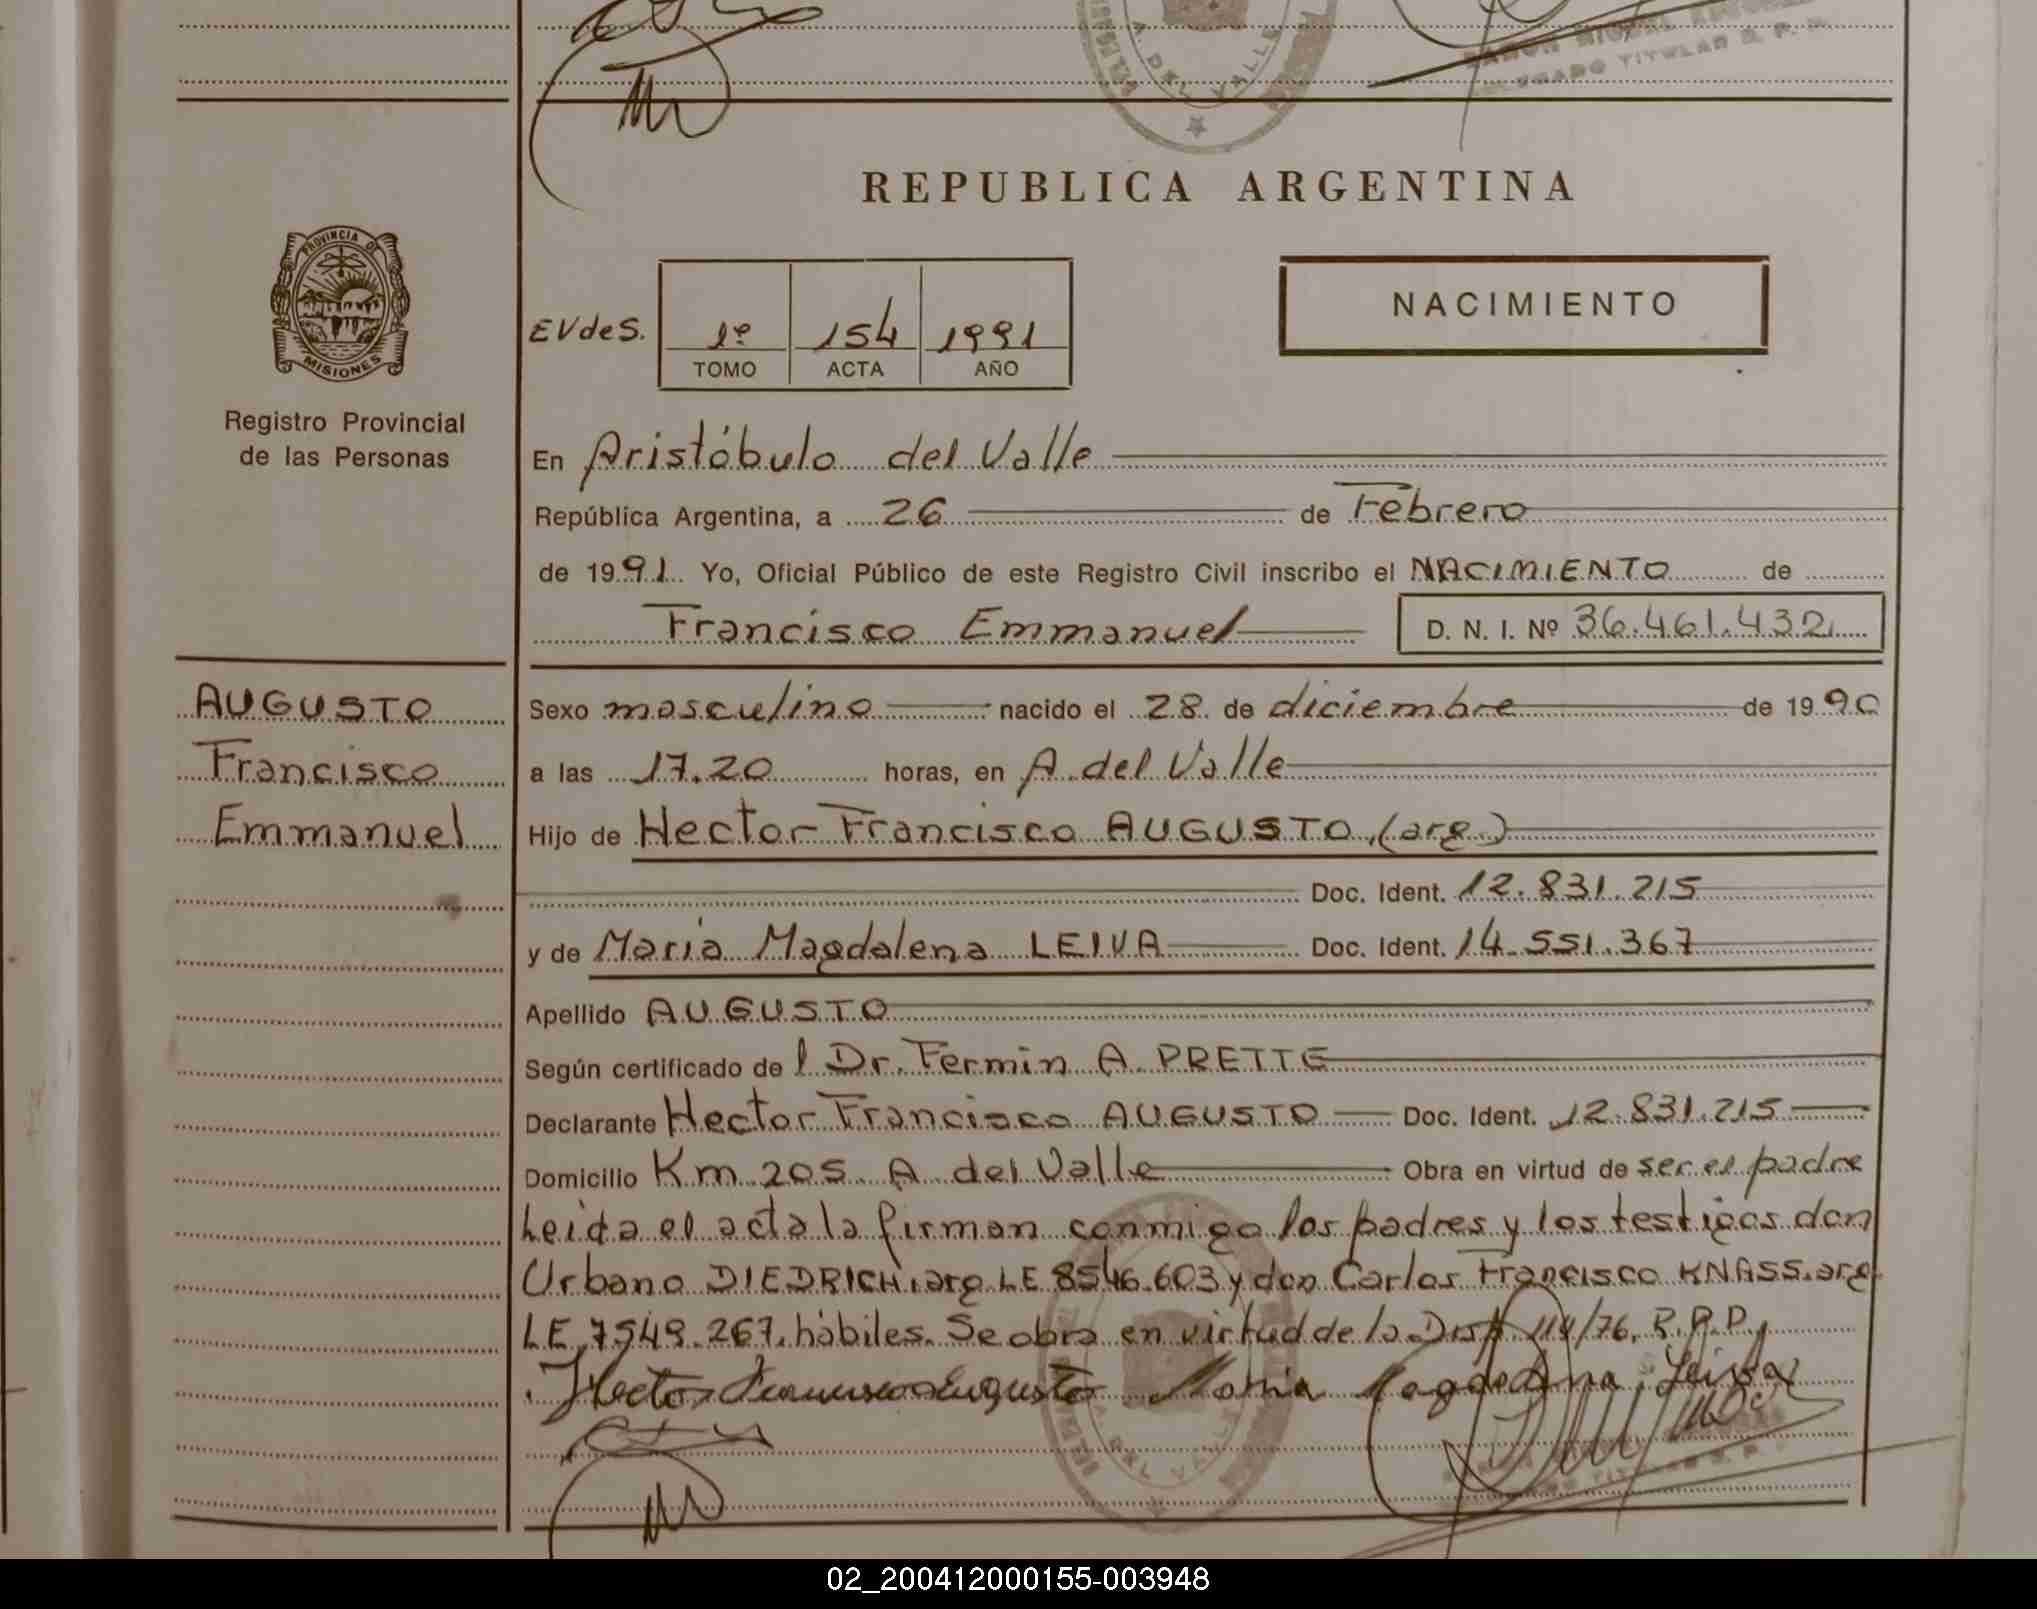 A. DEL VALLE
TITULAR R. P. P.
REPUBLICA ARGENTINA
PROVINCIA DE MISIONES
EVdeS. 1º 154 1991
TOMO ACTA AÑO
NACIMIENTO
Registro Provincial
de las Personas
En Aristóbulo del Valle
República Argentina, a 26 de Febrero
de 1991 Yo, Oficial Público de este Registro Civil inscribo el NACIMIENTO de
Francisco Emmanuel D. N. I. Nº 36.461.432
AUGUSTO
Francisco
Emmanuel
Sexo masculino nacido el 28 de diciembre de 1990
a las 17.20 horas, en A. del Valle
Hijo de Hector Francisco AUGUSTO, (arg.)
Doc. Ident. 12.831.215
y de Maria Magdalena LEIVA Doc. Ident. 14.551.367
Apellido AUGUSTO
Según certificado del Dr. Fermin A. PRETTE
Declarante Hector Francisco AUGUSTO Doc. Ident. 12.831.215
Domicilio Km 205 A. del Valle Obra en virtud de ser el padre
Leida el acta la firman conmigo los padres y los testigos don
Urbano DIEDRICH, arg LE 8546.603 y don Carlos Francisco KNASS. arg
LE 7549.267. hábiles. Se obra en virtud de la Disp. 114/76, R.P.P.
Hector Francisco Augusto Maria Magdalena Leiva
A. DEL VALLE
02_200412000155-003948